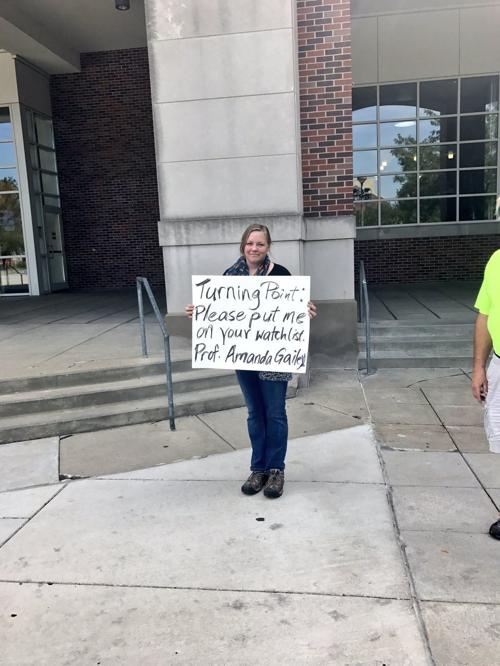 Turning Point:
Please put me
on your watchlist.
Prof. Amanda Gailey